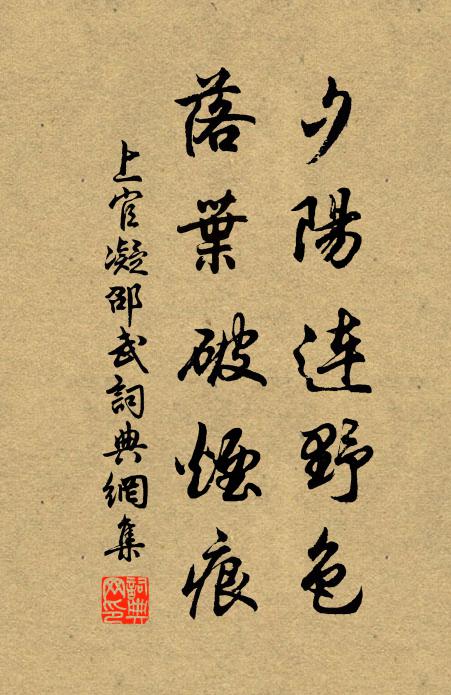 夕陽連野色
落葉破煙痕
上官凝邵武詞典網集
詞典網印